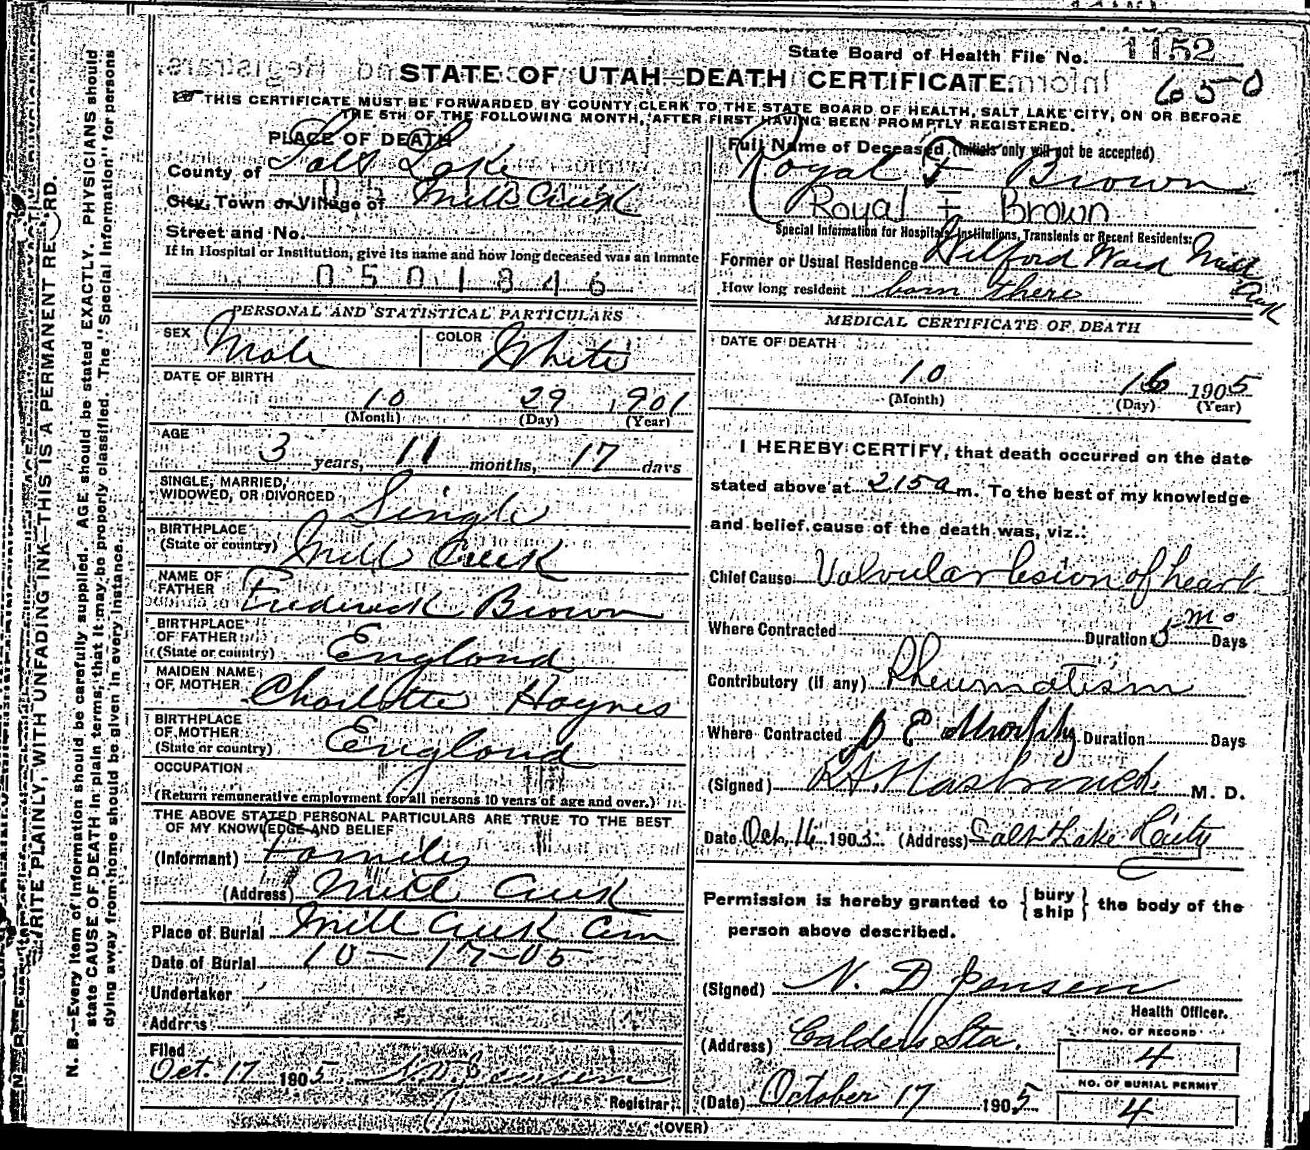 State Board of Health File No. 1152
650
STATE OF UTAH—DEATH CERTIFICATE.
THIS CERTIFICATE MUST BE FORWARDED BY COUNTY CLERK TO THE STATE BOARD OF HEALTH, SALT LAKE CITY, ON OR BEFORE
THE 5TH OF THE FOLLOWING MONTH, AFTER FIRST HAVING BEEN PROMPTLY REGISTERED.
PLACE OF DEATH
County of Salt Lake
City, Town or Village of Mill Creek
Street and No.
If in Hospital or Institution, give its name and how long deceased was an Inmate
0501846
Full Name of Deceased (Initials only will not be accepted)
Royal F Brown
Royal F Brown
Special Information for Hospitals, Institutions, Transients or Recent Residents:
Former or Usual Residence Wilford Ward Mill Creek
How long resident born there
PERSONAL AND STATISTICAL PARTICULARS
SEX Male COLOR White
DATE OF BIRTH
10 29 1901
(Month) (Day) (Year)
AGE
3 years, 11 months, 17 days
SINGLE, MARRIED,
WIDOWED, OR DIVORCED Single
BIRTHPLACE
(State or country) Mill Creek
NAME OF
FATHER Frederick Brown
BIRTHPLACE
OF FATHER
(State or country) England
MAIDEN NAME
OF MOTHER Charlotte Haynes
BIRTHPLACE
OF MOTHER
(State or country) England
OCCUPATION
(Return remunerative employment for all persons 10 years of age and over.)
THE ABOVE STATED PERSONAL PARTICULARS ARE TRUE TO THE BEST
OF MY KNOWLEDGE AND BELIEF
(Informant) Family
(Address) Mill Creek
Place of Burial Mill Creek Cem
Date of Burial 10-17-05
Undertaker
Address
Filed
Oct. 17 1905 N. D. Jensen
Registrar
MEDICAL CERTIFICATE OF DEATH
DATE OF DEATH
10 16 1905
(Month) (Day) (Year)
I HEREBY CERTIFY, that death occurred on the date
stated above at 2 15 a m. To the best of my knowledge
and belief cause of the death was, viz.:
Chief Cause Valvular lesion of heart
Where Contracted Duration 5 mo Days
Contributory (if any) Rheumatism
Where Contracted Murphy Duration Days
(Signed) M. D.
Date Oct, 16 1905. (Address) Salt Lake City
Permission is hereby granted to {bury ship} the body of the
person above described.
(Signed) N. D Jensen
Health Officer.
(Address) Calders Sta.
NO. OF RECORD
4
NO. OF BURIAL PERMIT
4
(Date) October 17 1905
(OVER)
WRITE PLAINLY, WITH UNFADING INK—THIS IS A PERMANENT RECORD.
N. B.—Every item of information should be carefully supplied. AGE should be stated EXACTLY. PHYSICIANS should
state CAUSE OF DEATH in plain terms, that it may be properly classified. The "Special Information" for persons
dying away from home should be given in every instance.